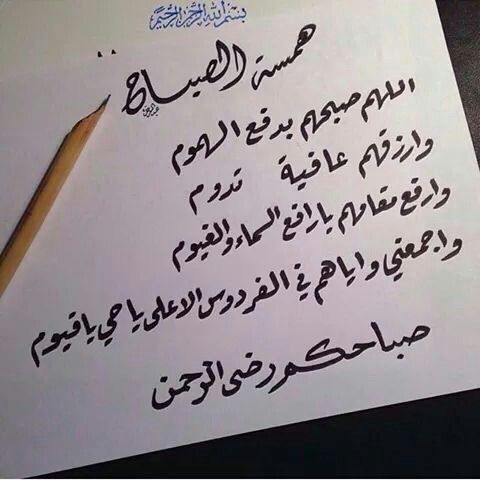 بسم الله الرحمن الرحيم
همسة الصباح
اللهم صبحهم بدفع الهموم
وارزقهم عافية تدوم
وارفع مقامهم يا رافع السماء والغيوم
واجمعني واياهم في الفردوس الاعلى يا حي يا قيوم
صباحكم رضى الرحمن